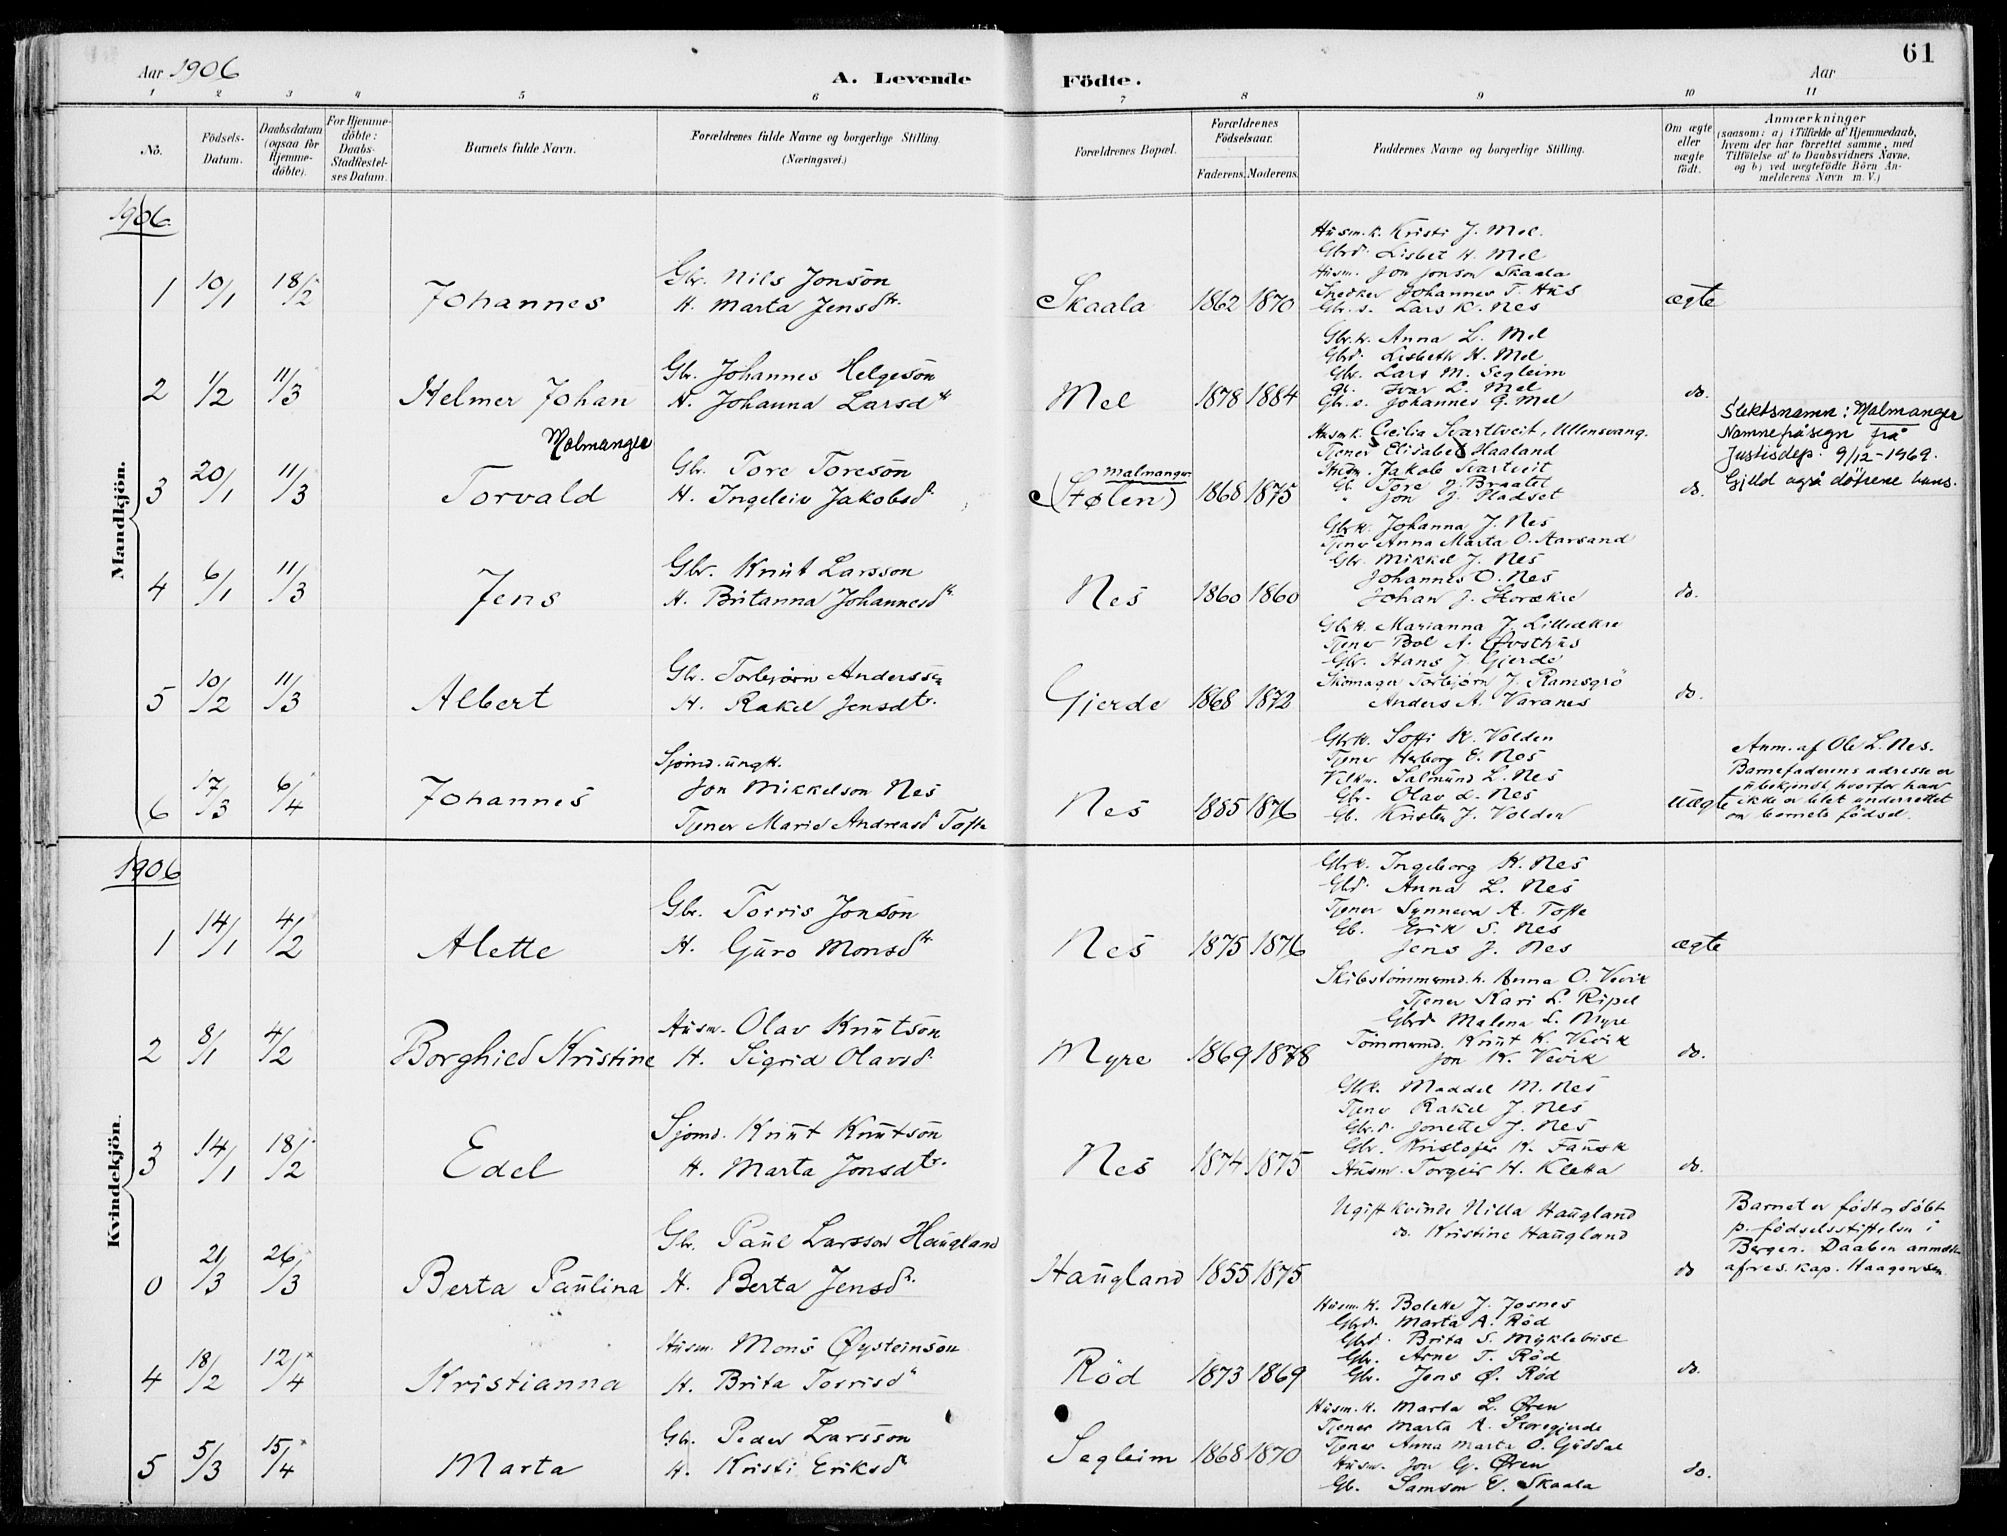 61
Aar 1906
A. Levende Födte.
Aar
1 2 3 4 5 6 7 8 9 10 11
No.
Födsels-Datum.
Daabsdatum (ogsaa for Hjemme-döbte).
For Hjemme-döbte: Daabs-Stadfæstel-ses Datum.
Barnets fulde Navn.
Forældrenes fulde Navne og borgerlige Stilling.
(Næringsvei.)
Forældrenes Bopæl.
Forældrenes Födselsaar.
Faderens. Moderens.
Faddernes Navne og borgerlige Stilling.
Om ægte eller uægte födt.
Anmærkninger
(saasom: a) i Tilfælde af Hjemmedaab, hvem der har forrettet samme, med Tilföielse af to Daabsvidners Navne, og b) ved uægtefödte Börn An-melderens Navn m. V.)
Mandkjön.
1906.
1 10/1 18/2 Johannes
Gbr. Nils Jonson
H. Marta Jensdtr.
Skaala 1862 1870
Husm.k. Kristi J. Mel.
Gbrd. Lisbet H. Mel
Husm. Jon Jonson Skaala
Snedker Johannes T. Hus
Gbr.s. Lars K. Nes
ægte
2 1/2 11/3 Helmer Johan
Gbr. Johannes Helgeson
H. Johanna Larsdtr
Mel 1878 1884
Gbr.k. Anna L. Mel
Gbrd. Lisbeth H. Mel
Gbr. Lars M. Segleim
Ivar L. Mel
Gbr.s. Johannes G. Mel
do.
3 20/1 11/3 Torvald Malmanger
Gbr. Tore Toreson
H. Ingeleiv Jakobsd.
Malmanger
(Stølen) 1868 1875
Husm.k. Cecilia Svartveit, Ullensvang.
Tjener Elisabet Haaland
Jakob Svartveit
Gb. Tore J. Braatet
" Jon J. Pladset
do.
Slektsnamn: Malmanger
Namnepåsegn frå
Justisdep. 9/12-1969.
Gjeld også døtrene hans.
4 6/1 11/3 Jens
Gbr. Knut Larsson
H. Britanna Johannesdtr.
Nes 1860 1860
Gbrk. Johanna J. Nes
Tjener Anna Marta O. Aarsand
Gbr. Mikkel J. Nes
Johannes O. Nes
Johan J. Storækre
do.
5 10/2 11/3 Albert
Gbr. Torbjørn Andersson
H. Rakel Jensdtr.
Gjerde 1868 1872
Gbrk. Marianna J. Lilleækre
Tjener Bol A. Østhus
Gbr. Hans J. Gjerde
Skomager Torbjørn J. Ramsgrö
Anders A. Varanes
do.
6 17/3 6/4 Johannes
Sjømd. ungk.
Jon Mikkelson Nes
Tjener Marie Andreasd Tofte
Nes 1885 1876
Gbrk. Soffi K. Volden
Tjener Herborg E. Nes
Salmund L. Nes
Gbr. Olav L. Nes
Gb. Kristen J. Volden
uægte
Anm. af Ole L. Nes.
Barnefaderens adresse er
ubekjendt, hvorfor han
ikke er blet underrettet
om barnets födsel.
Kvindekjön.
1906
1 14/1 4/2 Alette
Gbr. Torris Jonson
H. Guro Monsdtr
Nes 1875 1876
Gbrk. Ingeborg K. Nes
Gbd. Anna L. Nes
Tjener Synneva A. Tofte
Gb. Erik S. Nes
Jens J. Nes
ægte
2 8/1 4/2 Borghild Kristine
Husm. Olav Knutson
H. Sigrid Olavsd.
Myre 1869 1878
Skibstömmermd. h. Anna O. Vevik
Tjener Kari L. Ripel
Gbrd. Malena L. Myre
Tömmermd. Knut K. Vevik
Jon K. Vevik
do.
3 14/1 18/2 Edel
Sjømd. Knut Knutson
H. Marta Jonsdtr.
Nes 1874 1875
Gbrk. Maddel M. Nes
Tjener Rakel J. Nes
Gbr.d. Jonette J. Nes
Gbr. Kristofer K. Fausk
Husm. Torgeir H. Kletta
do.
0 21/3 26/3 Berta Paulina
Gbr. Paul Larsson Haugland
H. Berta Jensd.
Haugland 1855 1875
Ugift kvinde Nilla Haugland
do. Kristine Haugland
do
Barnet er født og döbt
p. fødselsstiftelsen i
Bergen. Daaben anmeldt
af res. kap. Haagensen.
4 18/2 12/4 Kristianna
Husm. Mons Øysteinson
H. Brita Torrisd
Rød 1873 1869
Husm.k. Bolette J. Josnes
Gbrd. Marta A. Rød
Gbrd. Brita S. Myklebust
Gbr. Arne T. Rød
Gbr. Jens Ø. Rød
do.
5 5/3 15/4 Marta
Gbr. Peder Larsson
H. Kristi Eriksd
Segleim 1868 1870
Husm.k. Marta L. Øren
Tjener Marta A. Storegjerde
Tjener Anna Marta O. Guddal
Husm. Jon G. Øren
Gb. Samson E. Skaala
do.